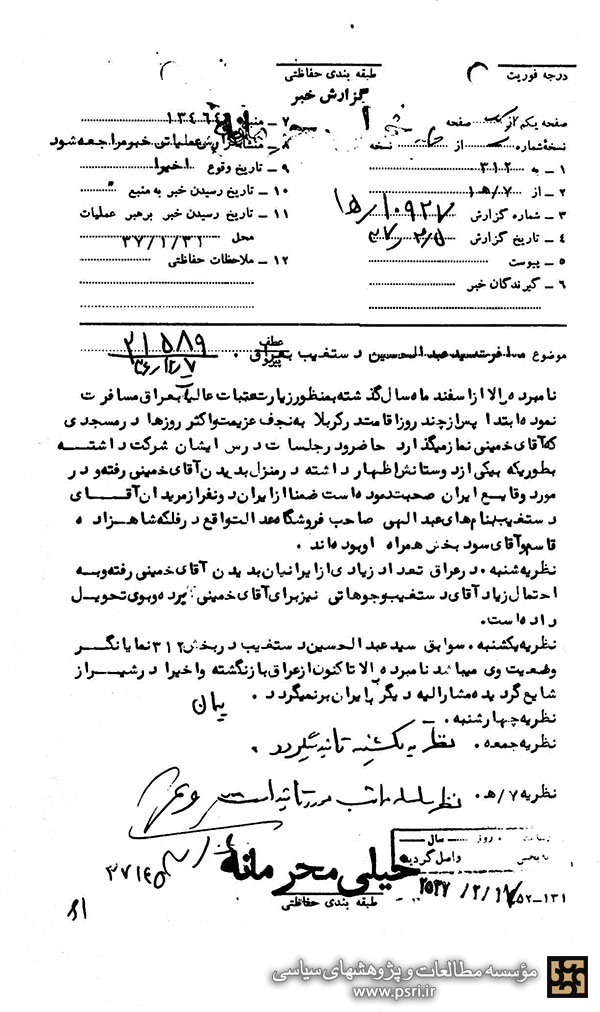 درجه فوریت
طبقه بندی حفاظتی
گزارش خبر
صفحه یکم از یک صفحه
نسخه شماره از نسخه
۱ – به ۳۱۲
۲ – از ۷/ه‍ ۱
۳ – شماره گزارش ۱۰۹۲۷/ه‍ ۱۵
۴ – تاریخ گزارش ۳۷/۲/۵
۵ – پیوست
۶ – گیرندگان خبر
۷ – منبع ۱۳۴۶۴
۸ – عملیاتی خبر مراجعه شود
۹ – تاریخ وقوع اخیرا
۱۰ – تاریخ رسیدن خبر به منبع
۱۱ – تاریخ رسیدن خبر برهبر عملیات
محل ۳۷/۱/۳۱
۱۲ – ملاحظات حفاظتی
موضوع مسافرت سید عبدالحسین دستغیب بعراق . عطف پیرو ۲۱۵۸۹
۳۶/۱۲/۷
نامبرده بالا از اسفند ماه سال گذشته بمنظور زیارت عتبات عالیات بعراق مسافرت
نموده ابتدا پس از چند روز اقامت در کربلا به نجف عزیمت و اکثر روزها در مسجدی
که آقای خمینی نماز میگذارد حاضر و در جلسات درس ایشان شرکت داشتـــه
بطوریکه بیکی از دوستانش اظهار داشته در منزل بدیدن آقای خمینی رفته و در
مورد وقایع ایران صحبت نموده است ضمنا از ایران دو نفر از مریدان آقـــای
دستغیب بنام های عبدالهی صاحب فروشگاه عدالت واقع در فلکه شاهزاده
قاسم و آقای سودبخش همراه او بوده‌اند .
نظریه شنبه . در عراق تعداد زیادی از ایرانیان بدیدن آقای خمینی رفته و بـــه
احتمال زیاد آقای دستغیب وجوهاتی نیز برای آقای خمینی برده و بوی تحویل
داده است.
نظریه یکشنبه . سوابق سید عبدالحسین دستغیب در بخش ۳۱۲ نمایانگـــر
وضعیت وی میباشد نامبرده بالا تاکنون از عراق بازنگشته و اخیرا در شیـــراز
شایع گردیده مشارالیه دیگر بایران برنمیگردد . پیمان
نظریه چهارشنبه .
نظریه جمعه . نظریه یکشنبه تائید میگردد .
نظریه ۷/ه‍ . نظریه سلسله مراتب مورد تائید است
۳۷/۲/۵
خیلی محرمانه
طبقه بندی حفاظتی
روز سال
به بخش واصل گردید
۲۵۳۷/۲/۱۷
۵۲–۱۳۱
۸۱
مؤسسه مطالعات و پژوهشهای سیاسی
www.psri.ir